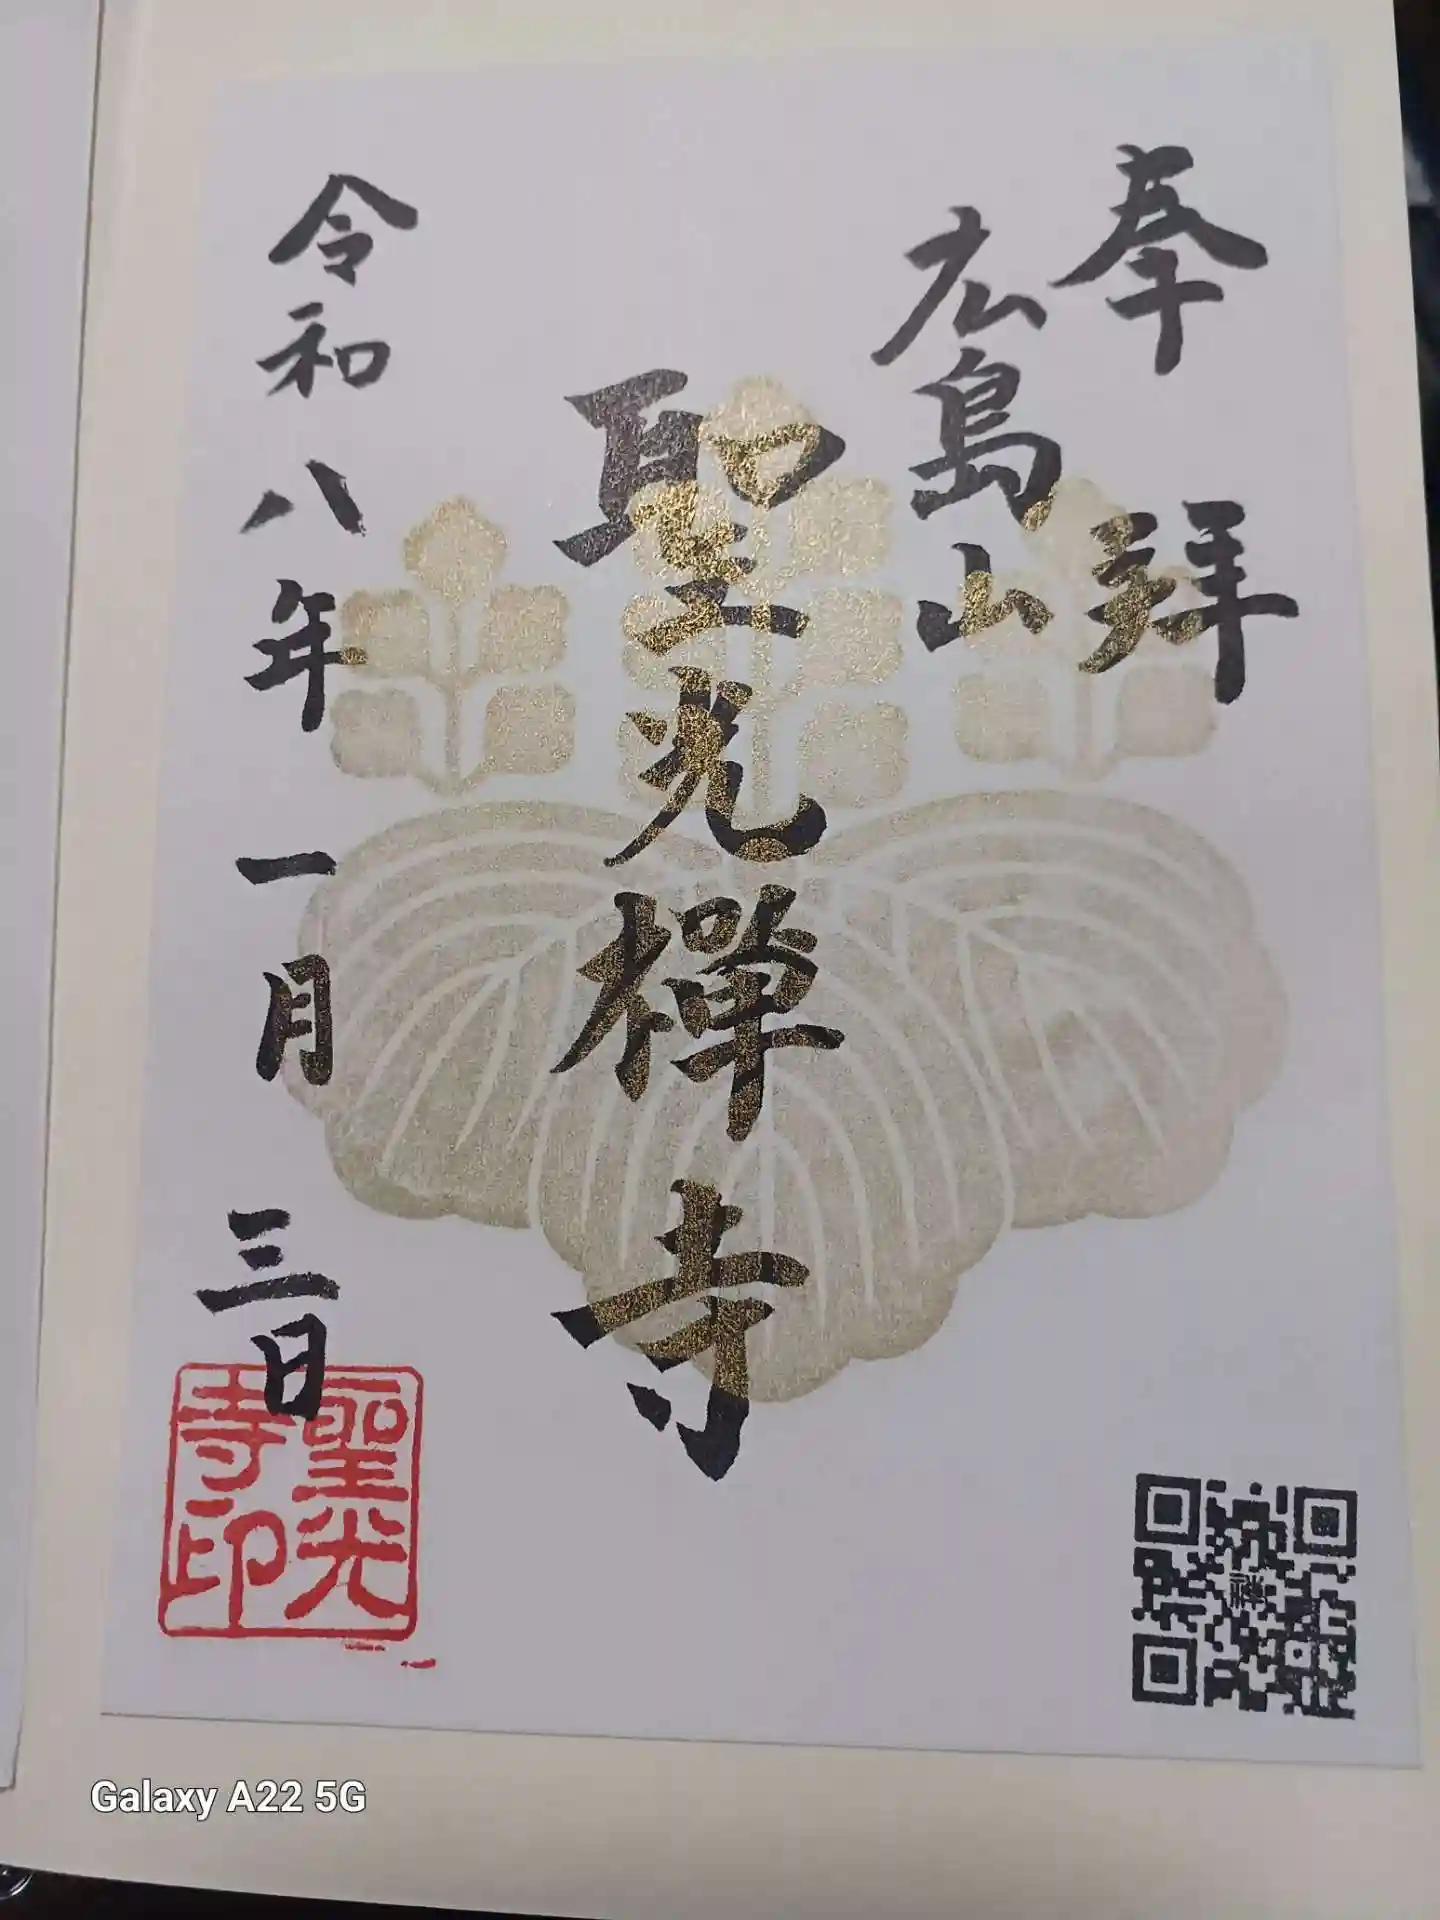 奉拝
広島山
聖光禅寺
令和八年一月三日
聖光
寺印
Galaxy A22 5G